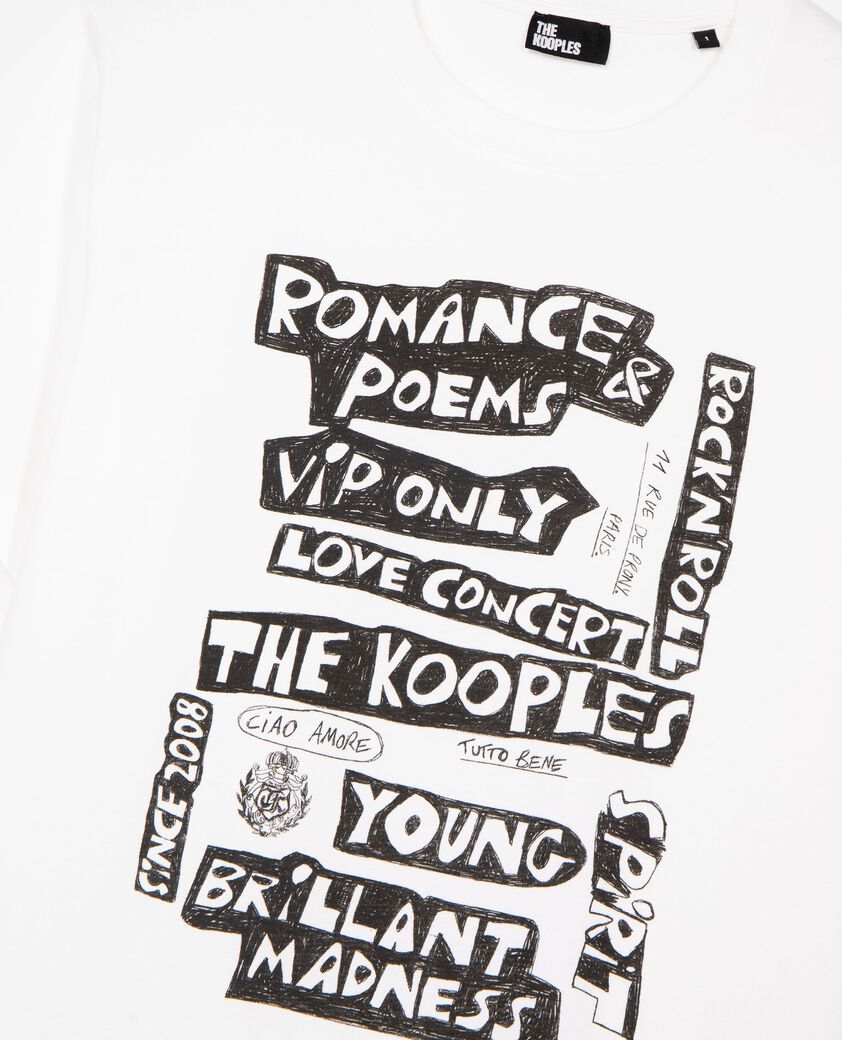 THE
KOOPLES
1
ROMANCE &
POEMS
ROCK'N'ROLL
ViP ONLY
11 RUE DE PRONY
PARIS
LOVE CONCERT
THE KOOPLES
CiAO AMORE
TUTTO BENE
SiNCE 2008
YOUNG
SPiRiT
BRiLLANT
MADNESS